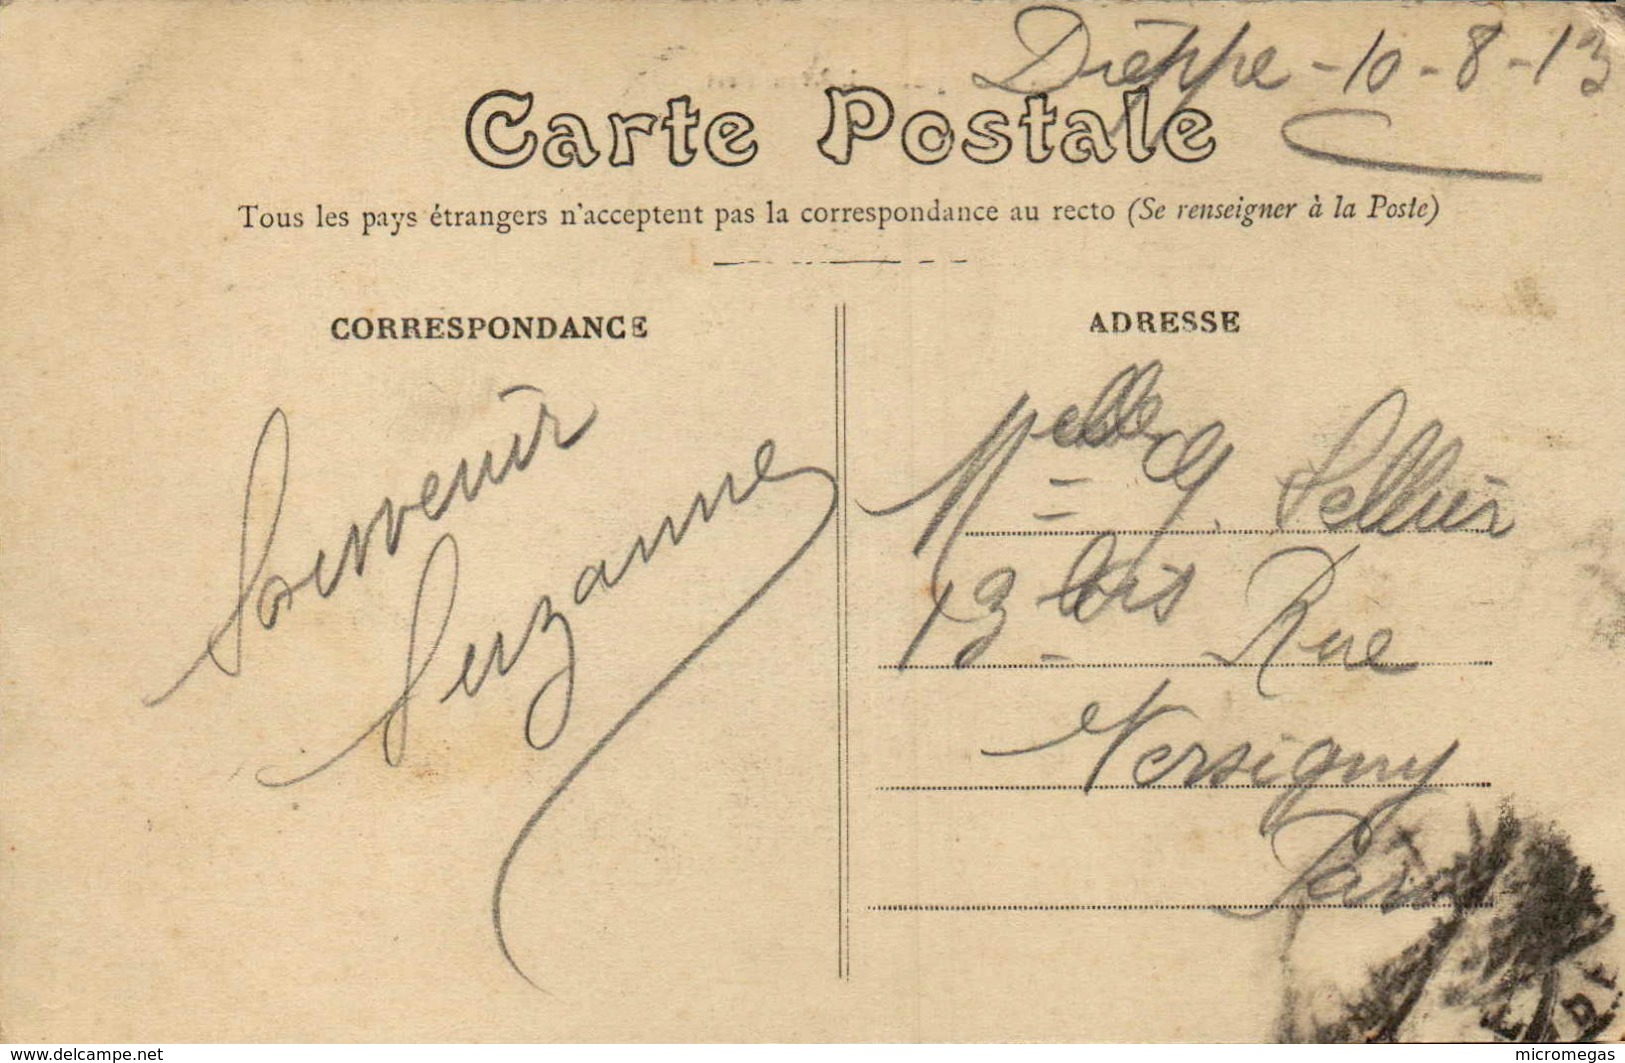 Dieppe - 10 - 8 - 13
Carte Postale
Tous les pays étrangers n'acceptent pas la correspondance au recto (Se renseigner à la Poste)
CORRESPONDANCE
Souvenir
Suzanne
ADRESSE
Melle G. Sellier
13 bis Rue
Versigny
Paris
www.delcampe.net
micromegas